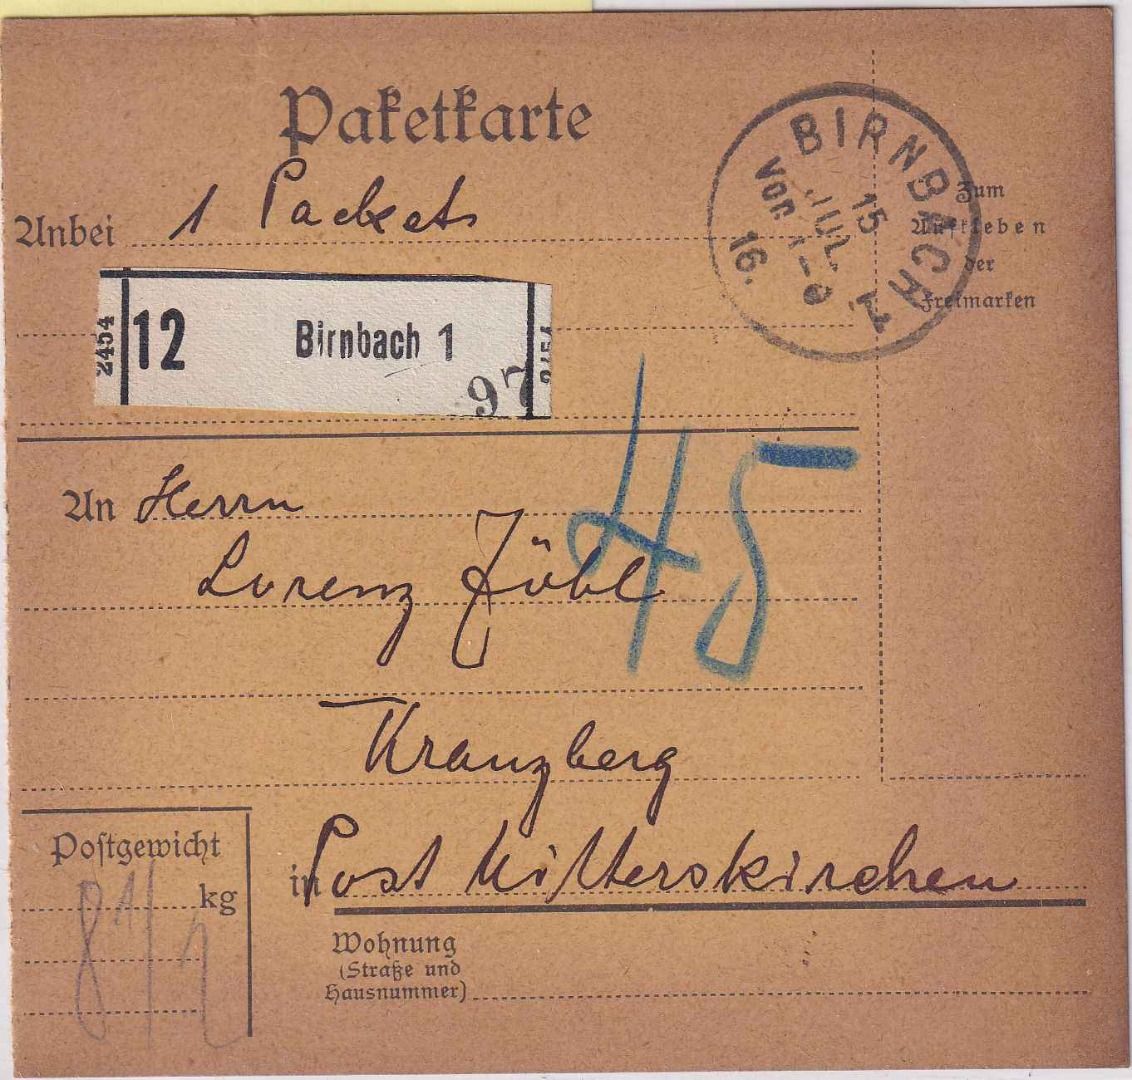 Paketkarte
Anbei 1 Packet
BIRNBACH 1
15
JUL.
Vor.
16.
Zum
Aufkleben
der
Freimarken
2454
12 Birnbach 1
97
2454
45
An Herrn
Lorenz Jöbl
Kranzberg
Postgewicht
8 1/2 kg
in Post Mitterskirchen
Wohnung
(Straße und
Hausnummer)